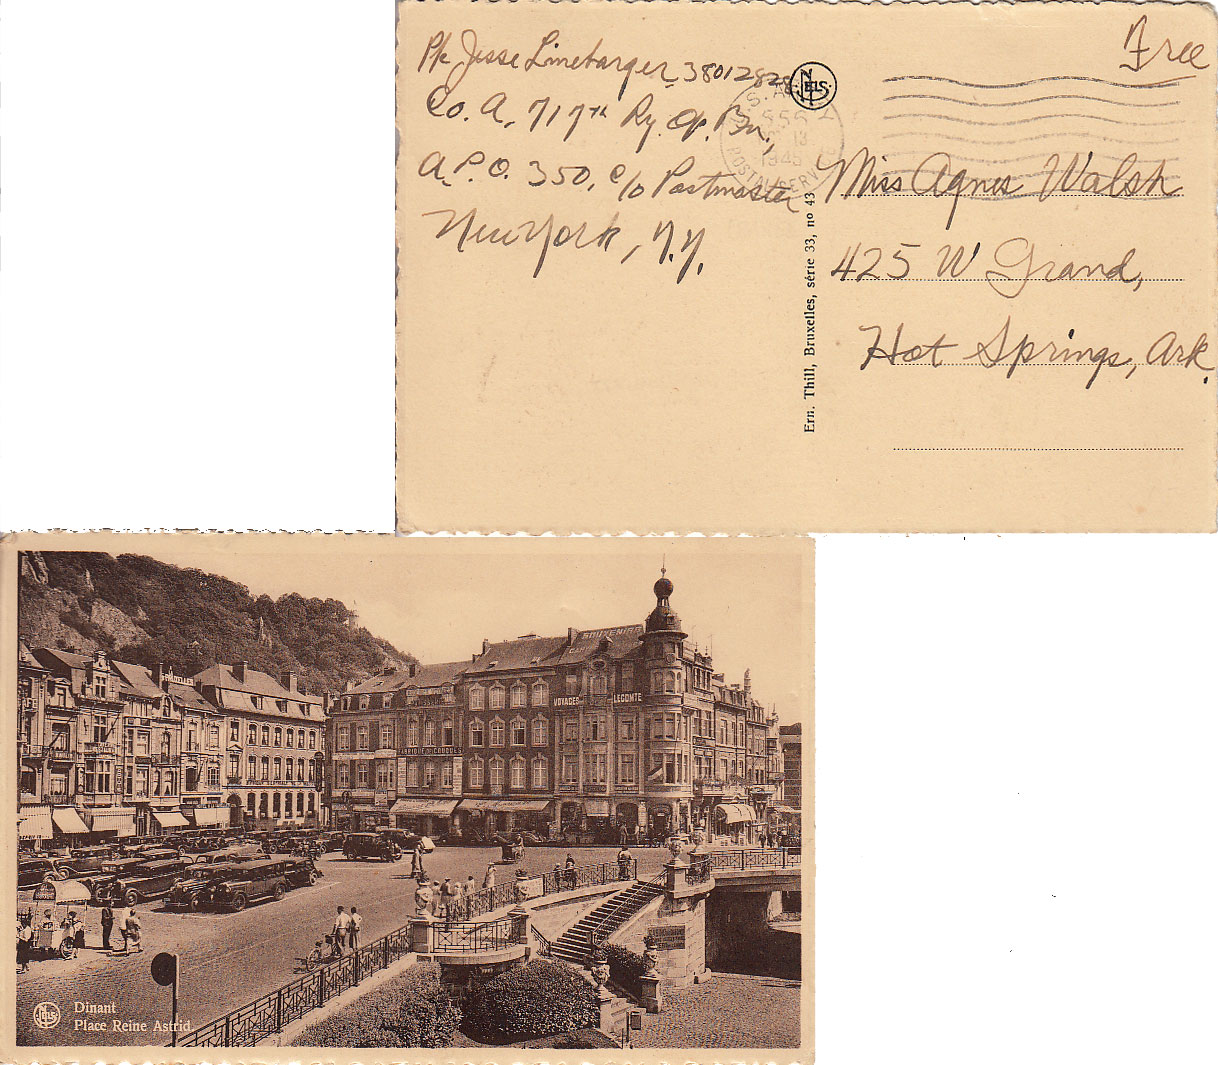 Pfc Jesse Linebarger 38012828
Co. A, 717th Ry. Op. Bn.,
A.P.O. 350, c/o Postmaster
New York, N.Y.
Free
NELS
U.S. ARMY
1945
POSTAL SERVICE
Miss Agnes Walsh
425 W Grand,
Hot Springs, Ark.
Ern. Thill, Bruxelles, série 33, no 43
SOUVENIRS
VOYAGES LECOMTE
FABRIQUE DE COUQUES
NELS
Dinant
Place Reine Astrid.